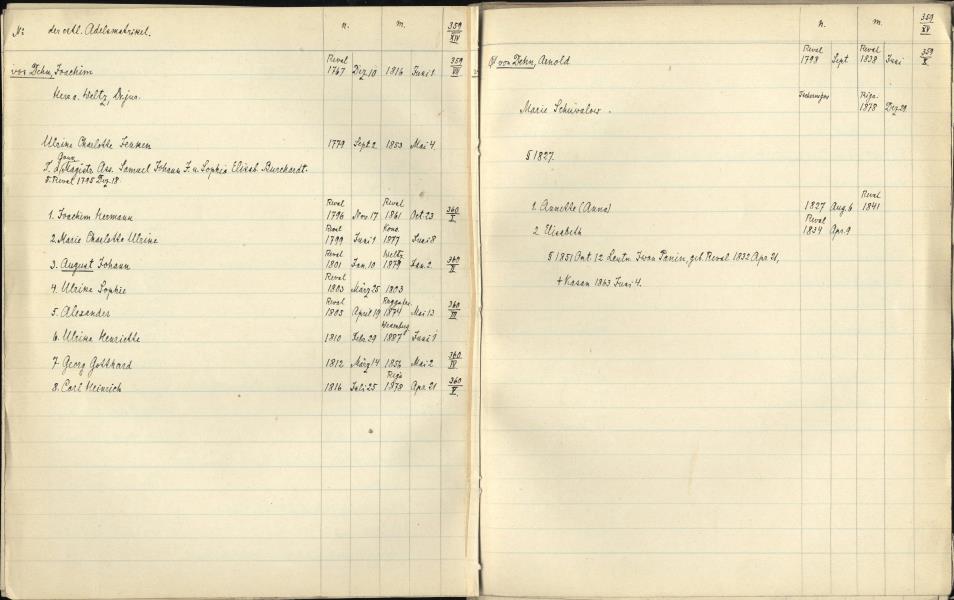 № der estl. Adelsmatrikel. n. m. 359/XIV
von Dehn, Joachim Reval 1767 Dez. 10 1816 Juni 1 359/VII
Herr a. Weltz, Dr. jur.
Ulrine Charlotte Jencken 1779 Sept. 2 1853 Mai 4.
T. d. Magistr. Ass. Samuel Johann J. u. Sophia Elisab. Burchardt.
§ Reval 1795 Dez. 18
1. Joachim Hermann Reval 1796 Nov 17 Reval 1861 Oct. 23 360/I
2. Marie Charlotte Ulrine Reval 1799 Juni 1 1877 Juni 8
3. August Johann Reval 1801 Jan. 10 Weltz 1879 Jan. 2. 360/II
4. Ulrine Sophie Reval 1803 März 25 1803
5. Alexander Reval 1805 April 19 1874 Mai 13 360/III
6. Ulrine Henriette 1810 Febr. 29 1887 Juni 1
7. Georg Gotthard 1812 März 14 1856 Mai 2 360/IV
8. Carl Heinrich 1816 Juli 25 Riga 1878 Apr. 21 360/V.
n. m. 359/XV
von Dehn, Arnold Reval 1798 Sept. Reval 1838 Juni 359/X
Marie Schuwalow. Riga 1878 Dez. 29.
§ 1827.
1. Annette (Anna) 1827 Aug. 6 Reval 1841
2. Elisabeth Reval 1834 Apr. 9
§ 1851 Okt. 12 Leutn. Iwan Panin, geb. Reval 1832 Apr. 21,
† Kasan 1863 Juni 4.